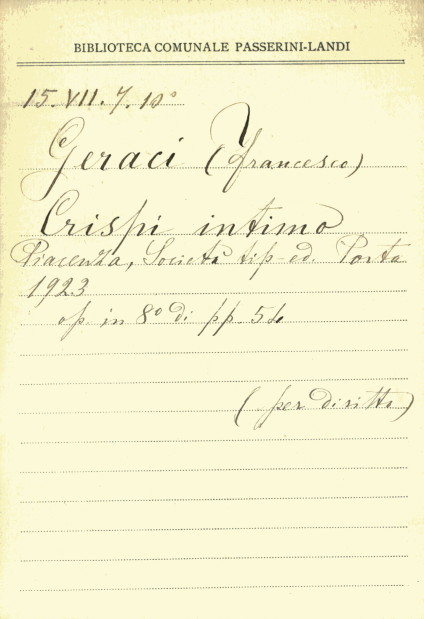 BIBLIOTECA COMUNALE PASSERINI-LANDI
15. VII. 7. 10°
Geraci (Francesco)
Crispi intimo
Piacenza, Società tip. ed. Porta
1923
op. in 8° di pp 54
(per diritto)